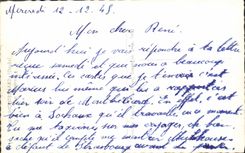 Mercredi 12-12-45
Mon cher René.
Aujourd'hui je vais répondre à ta lettre
reçue samedi et qui nous a beaucoup
intéressé. les cartes que je t'envoie c'est
Marius lui même qui les a rapportées
hier soir de Montbéliard. En effet c'est
bien à Sochaux qu'il travaille en ce moment
Tu me taquines sur mes voyages, eh bien
à défaut de Strasbourg